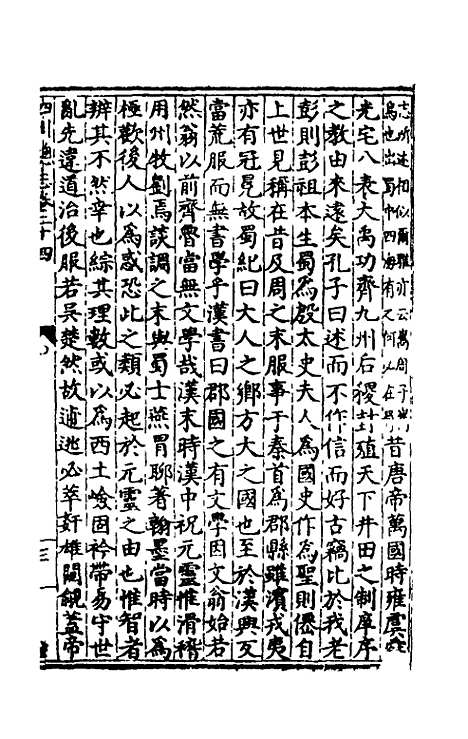 志所述相似爾雅亦云嶲周子嶲
鳥也出蜀中四海有又何必在蜀
昔唐帝萬國時雍虞舜
光宅八表大禹功齊九州后稷封殖天下井田之制庠序
之教由來遠矣孔子曰述而不作信而好古竊比於我老
彭則彭祖本生蜀為殷太史夫人為國史作為聖則僊自
上世見稱在昔及周之末服事于秦首為郡縣雖濱戎夷
亦有冠冕故蜀紀曰大人之鄉方大之國也至於漢興反
當荒服而無書學乎漢書曰郡國之有文學因文翁始若
然翁以前齊魯當無文學哉漢末時漢中祝元靈惟滑稽
用州牧劉焉談調之末與蜀士燕胥聊著翰墨當時以為
極歡後人以為惑恐此之類必起於元靈之由也惟智者
辨其不然幸也綜其理數或以為西土嶮固衿帶易守世
亂先違道治後服若吳楚然故逋逃必萃奸雄闚覦蓋帝
四川通志卷三十四
三